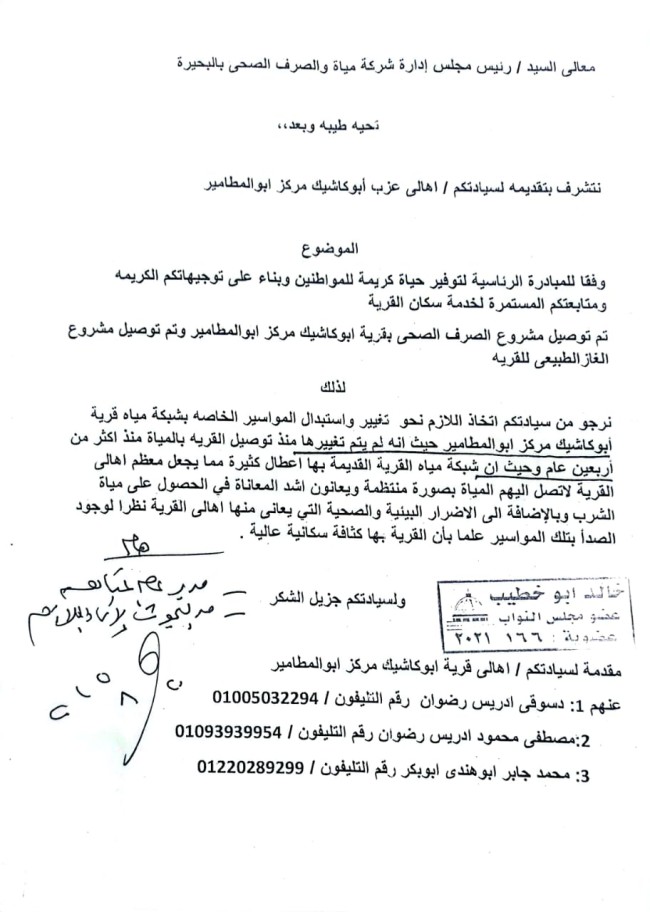 معالى السيد / رئيس مجلس إدارة شركة مياة والصرف الصحى بالبحيرة
تحيه طيبه وبعد،،
نتشرف بتقديمه لسيادتكم / اهالى عزب أبوكاشيك مركز ابوالمطامير
الموضوع
وفقا للمبادرة الرئاسية لتوفير حياة كريمة للمواطنين وبناء على توجيهاتكم الكريمه
ومتابعتكم المستمرة لخدمة سكان القرية
تم توصيل مشروع الصرف الصحى بقرية ابوكاشيك مركز ابوالمطامير وتم توصيل مشروع
الغازالطبيعى للقريه
لذلك
نرجو من سيادتكم اتخاذ اللازم نحو تغيير واستبدال المواسير الخاصه بشبكة مياه قرية
أبوكاشيك مركز ابوالمطامير حيث انه لم يتم تغييرها منذ توصيل القريه بالمياة منذ اكثر من
أربعين عام وحيث ان شبكة مياه القرية القديمة بها اعطال كثيرة مما يجعل معظم اهالى
القرية لاتصل اليهم المياة بصورة منتظمة ويعانون اشد المعاناة في الحصول على مياة
الشرب وبالإضافة الى الاضرار البيئية والصحية التي يعانى منها اهالى القرية نظرا لوجود
الصدأ بتلك المواسير علما بأن القرية بها كثافة سكانية عالية .
هام
ولسيادتكم جزيل الشكر
خالد ابو خطيب
عضو مجلس النواب
عضوية : ١٦٦ ٢٠٢١
مقدمة لسيادتكم / اهالى قرية ابوكاشيك مركز ابوالمطامير
عنهم 1: دسوقى ادريس رضوان رقم التليفون / 01005032294
2:مصطفى محمود ادريس رضوان رقم التليفون / 01093939954
3: محمد جابر ابوهندى ابوبكر رقم التليفون / 01220289299